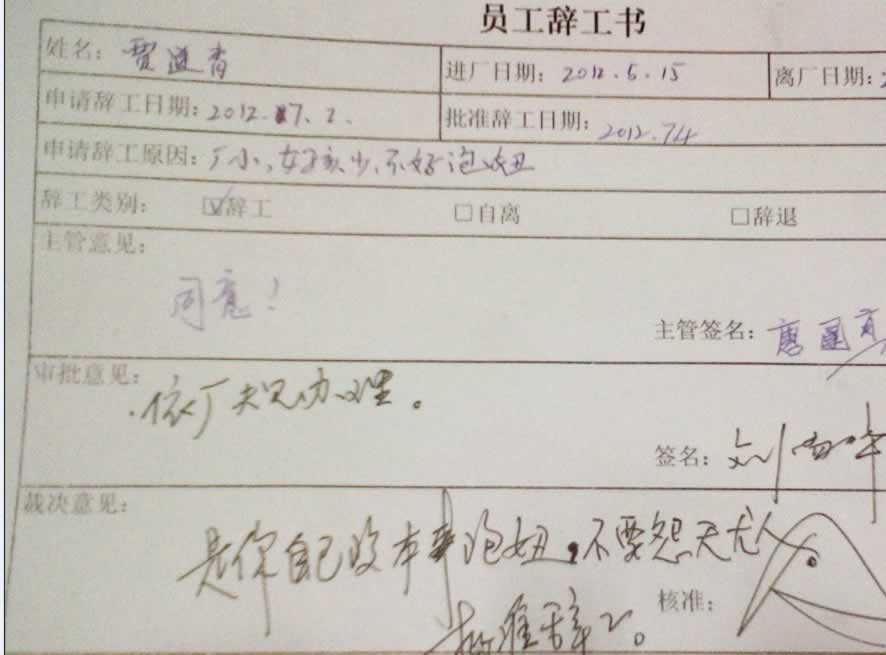 员工辞工书
姓名： 进厂日期：2012.5.15 离厂日期：
申请辞工日期：2012.7.2. 批准辞工日期：2012.7.4
申请辞工原因：厂小,女孩少,不好泡妞
辞工类别： ☑辞工 □自离 □辞退
主管意见：
同意！
主管签名：唐
审批意见：
依厂规办理。
签名：刘
裁决意见：
是你自己没本事泡妞,不要怨天尤人。
核准：
批准辞工。